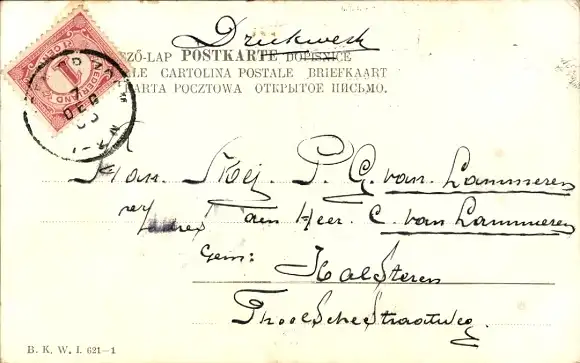 Drukwerk
EZŐ-LAP POSTKARTE DOPISNICE
ALE CARTOLINA POSTALE BRIEFKAART
KARTA POCZTOWA ОТКРЫТОЕ ПИСЬМО.
1
NEDERLAND
7 DEC
P. G. van Lammeren
den Heer C. van Lammeren
Gem:
Halsteren
Thoolschestraatweg.
B. K. W. I. 621—1